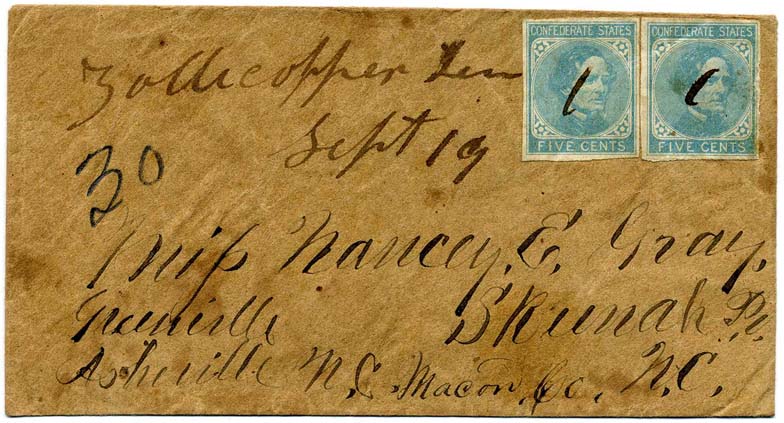 CONFEDERATE STATES
FIVE CENTS
CONFEDERATE STATES
FIVE CENTS
Zollicopper Ten
Sept 19
30
Miss Nancy, E. Gray,
Greenville Skeenah
Asheville N.C. Macon Co, N.C.